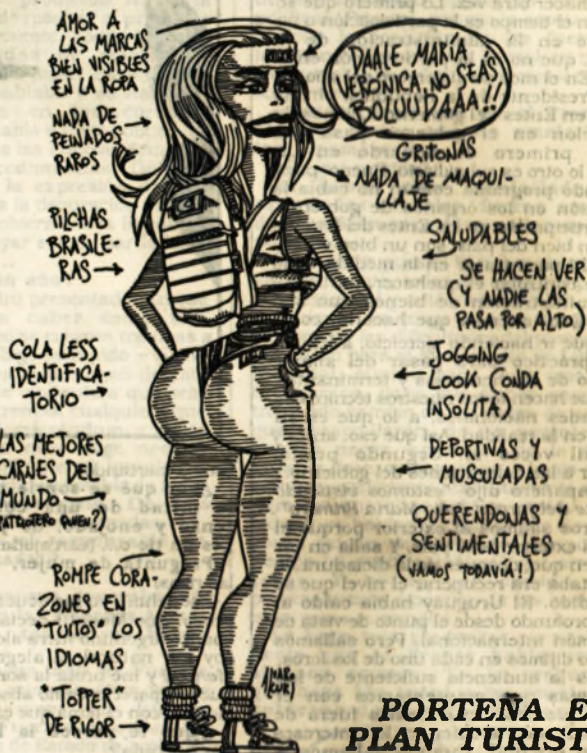 AMOR A
LAS MARCAS
BIEN VISIBLES
EN LA ROPA
NADA DE
PEINADOS
RAROS
PILCHAS
BRASILE-
RAS
COLA LESS
IDENTIFICA-
TORIO
LAS MEJORES
CARNES DEL
MUNDO
(PATRIOTERO QUIEN?)
ROMPE CORA-
ZONES EN
"TUITOS" LOS
IDIOMAS
"TOPPER"
DE RIGOR
DAALE MARÍA
VERÓNICA, NO SEAS
BOLUUDAAA!!
GRITONAS
NADA DE MAQUI-
LLAJE
SALUDABLES
SE HACEN VER
(Y NADIE LAS
PASA POR ALTO)
JOGGING
LOOK (ONDA
INSÓLITA)
DEPORTIVAS Y
MUSCULADAS
QUERENDONAS Y
SENTIMENTALES
(VAMOS TODAVÍA!)
PORTEÑA E
PLAN TURIST